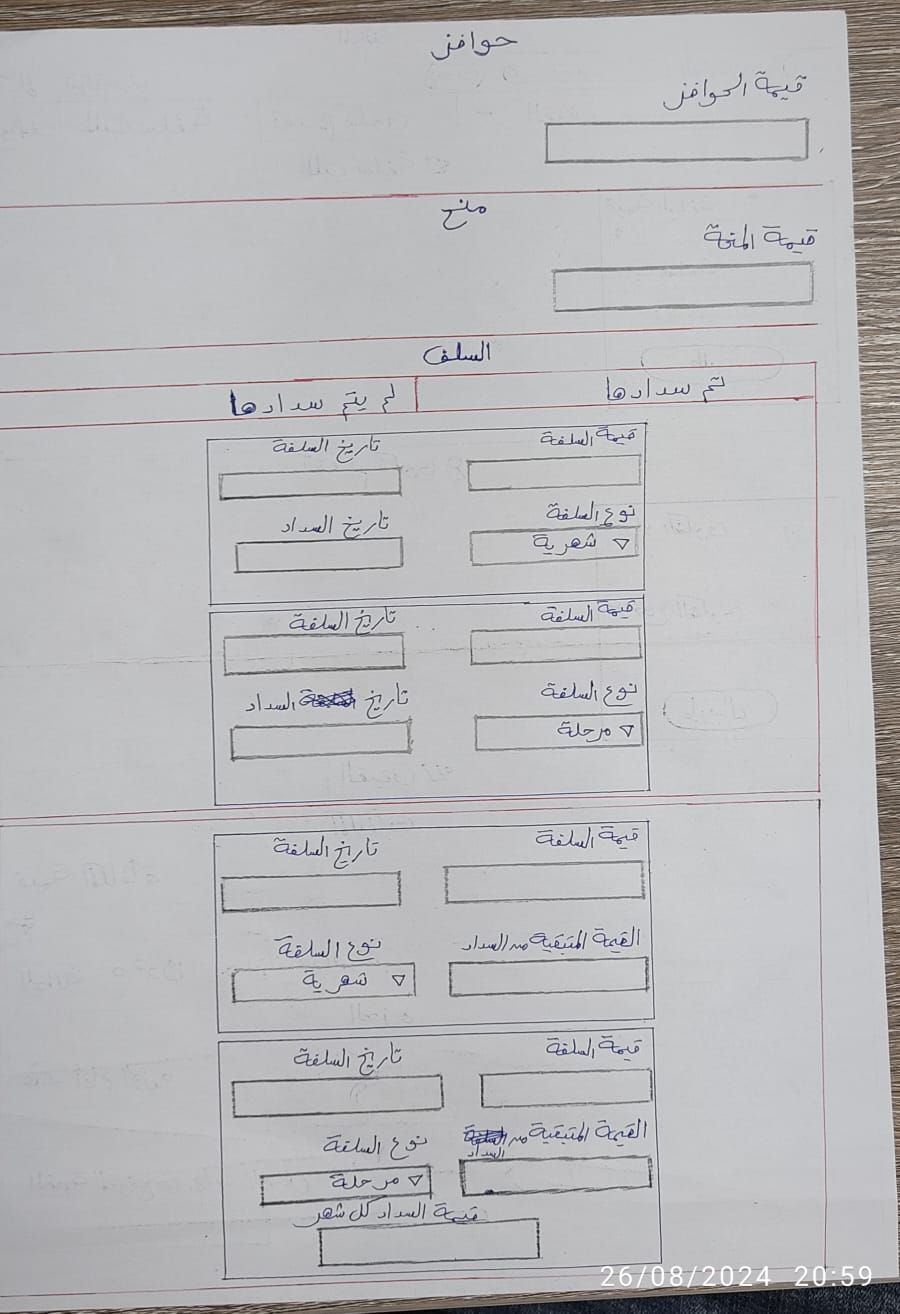 حوافز
قيمة الحوافز
منح
قيمة المنحة
السلف
تم سدادها لم يتم سدادها
قيمة السلفة تاريخ السلفة
نوع السلفة تاريخ السداد
شهرية
قيمة السلفة تاريخ السلفة
نوع السلفة تاريخ السداد
مرحلة
قيمة السلفة تاريخ السلفة
القيمة المتبقية من السداد نوع السلفة
شهرية
قيمة السلفة تاريخ السلفة
القيمة المتبقية من السداد نوع السلفة
مرحلة
قيمة السداد كل شهر
26/08/2024 20:59